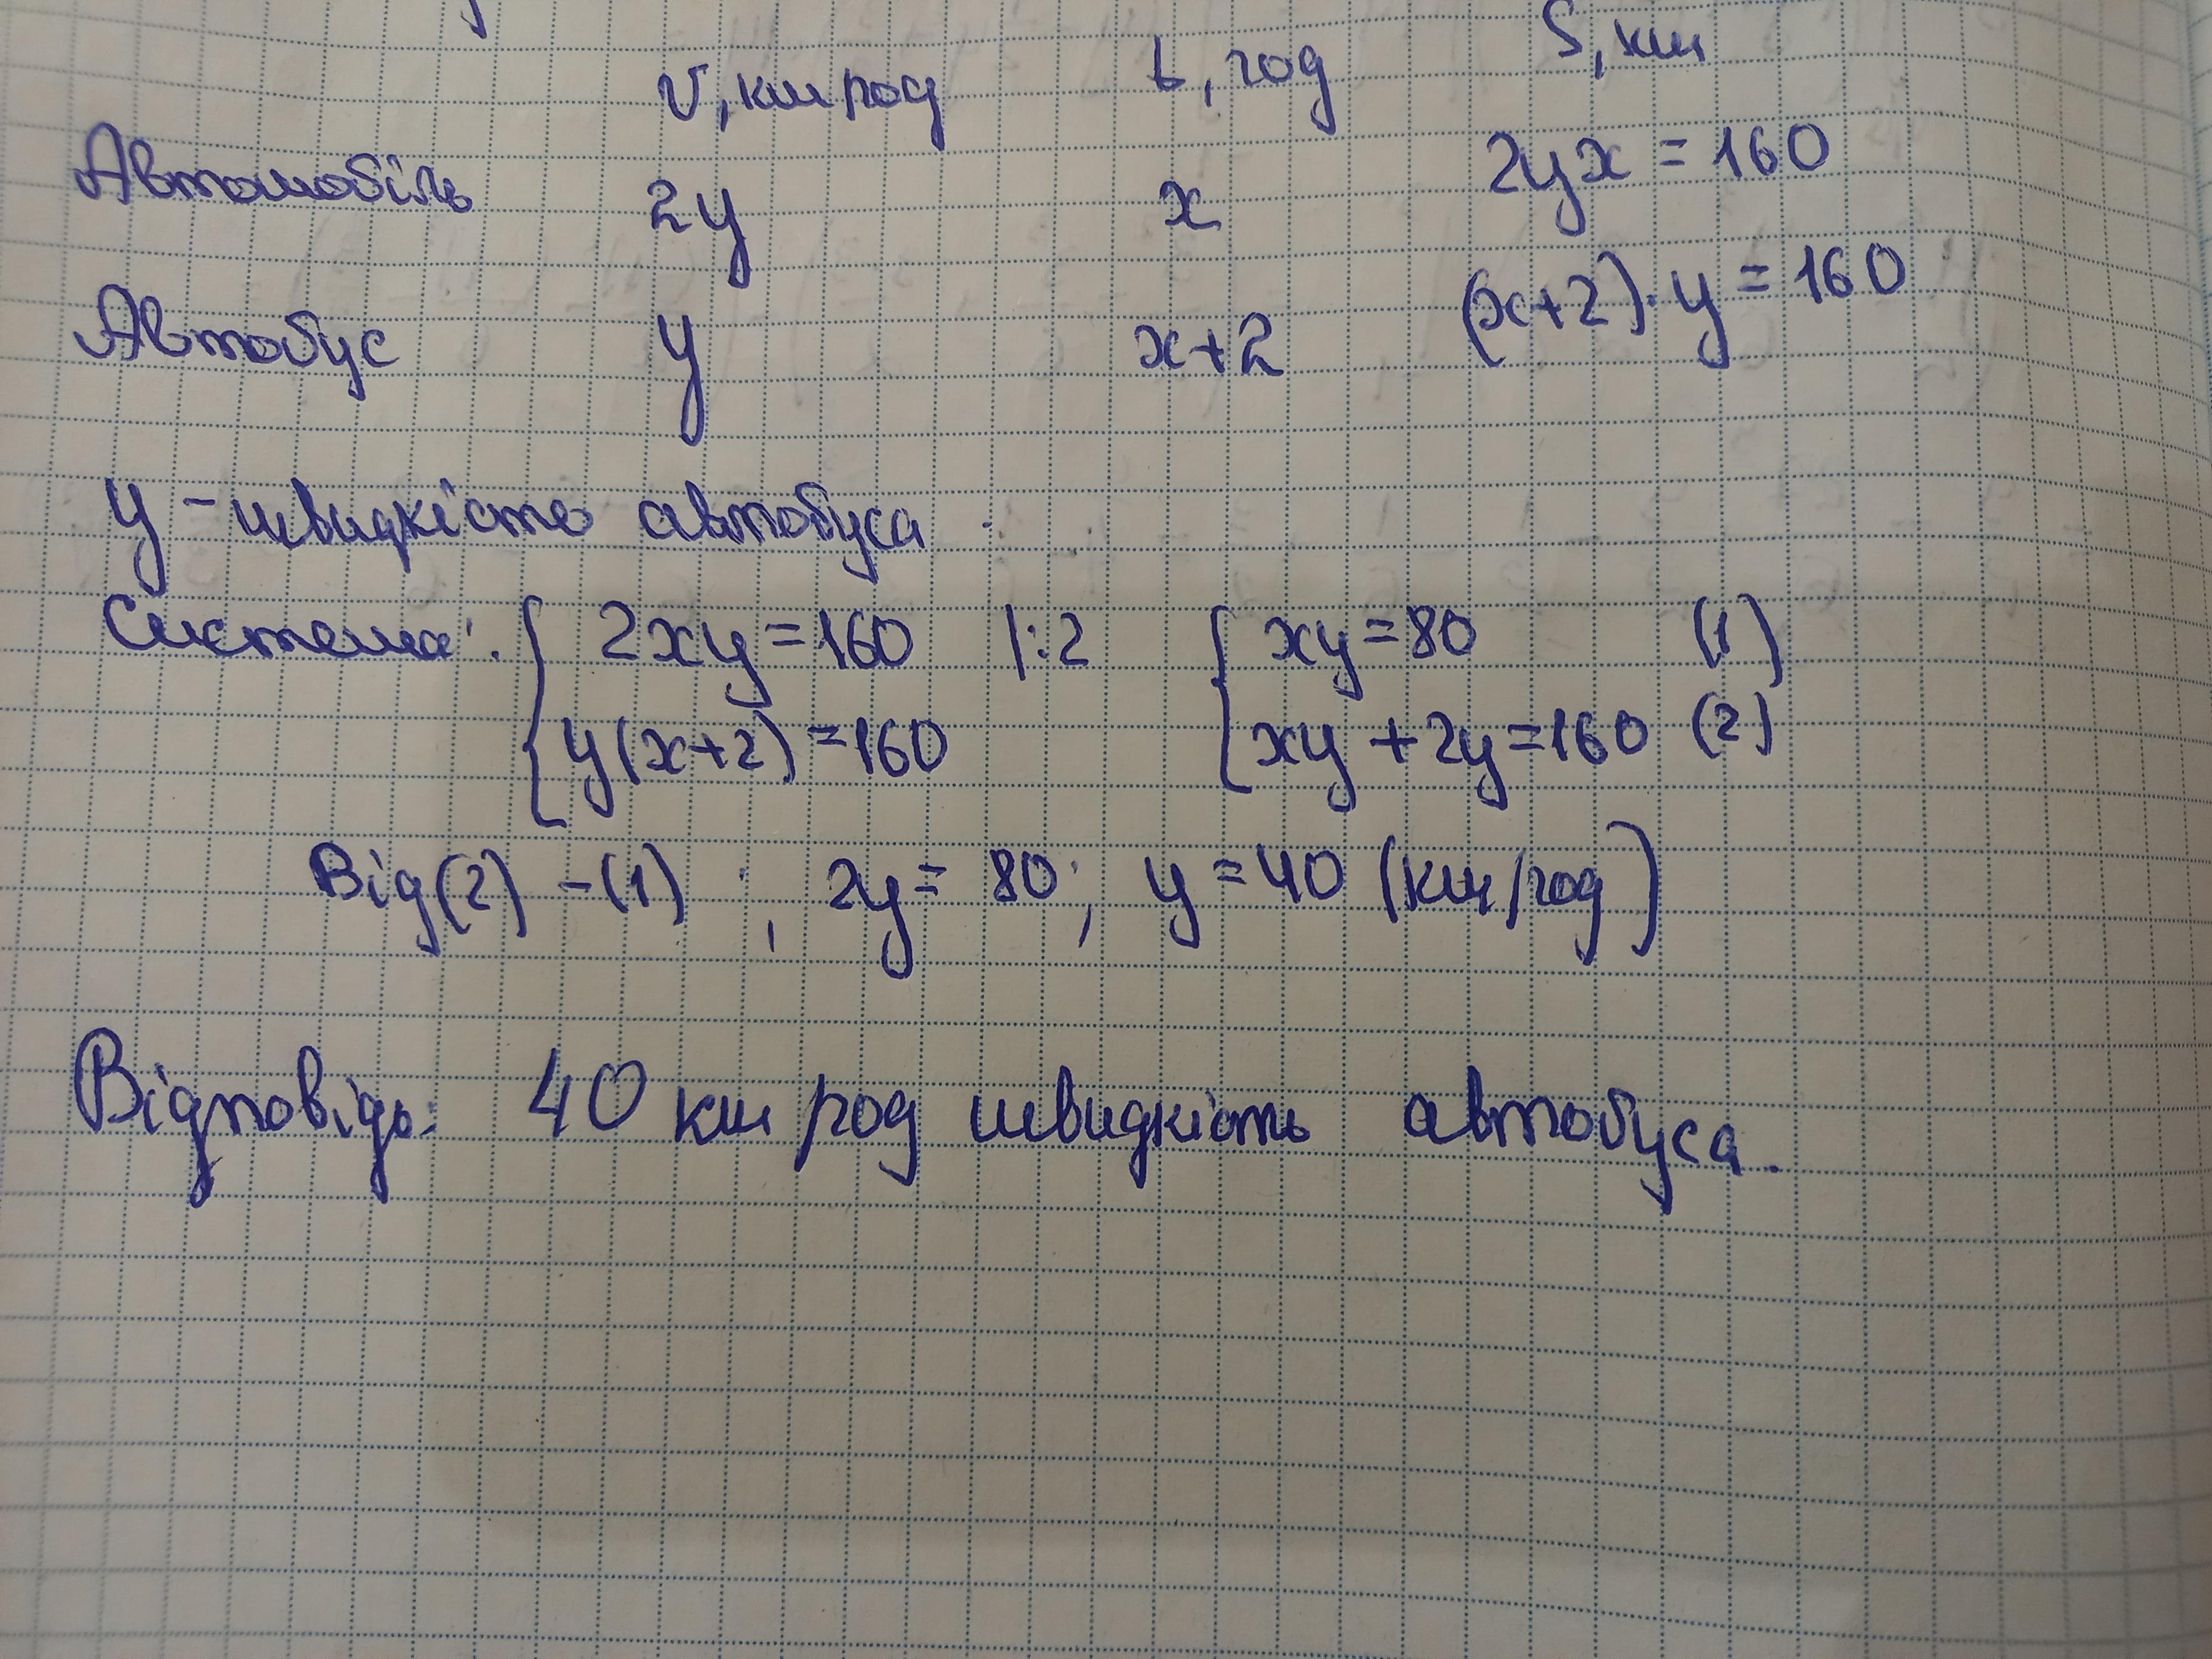 v, км/год t, год S, км
Автомобіль 2y x 2yx = 160
Автобус y x+2 (x+2)·y = 160
y – швидкість автобуса
Система: { 2xy = 160 |:2 { xy = 80 (1)
y(x+2) = 160 xy + 2y = 160 (2)
Від (2) – (1) ; 2y = 80; y = 40 (км/год)
Відповідь: 40 км/год швидкість автобуса.